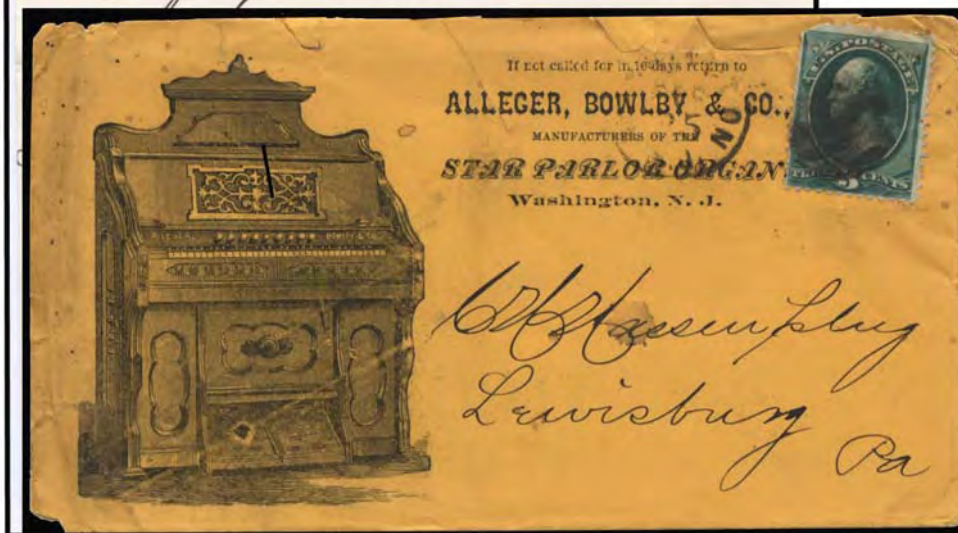 If not called for in 10 days return to
ALLEGER, BOWLBY & CO.,
MANUFACTURERS OF THE
STAR PARLOR ORGAN
Washington, N. J.
U.S. POSTAGE
THREE CENTS
5
NO
Lewisburg
Pa